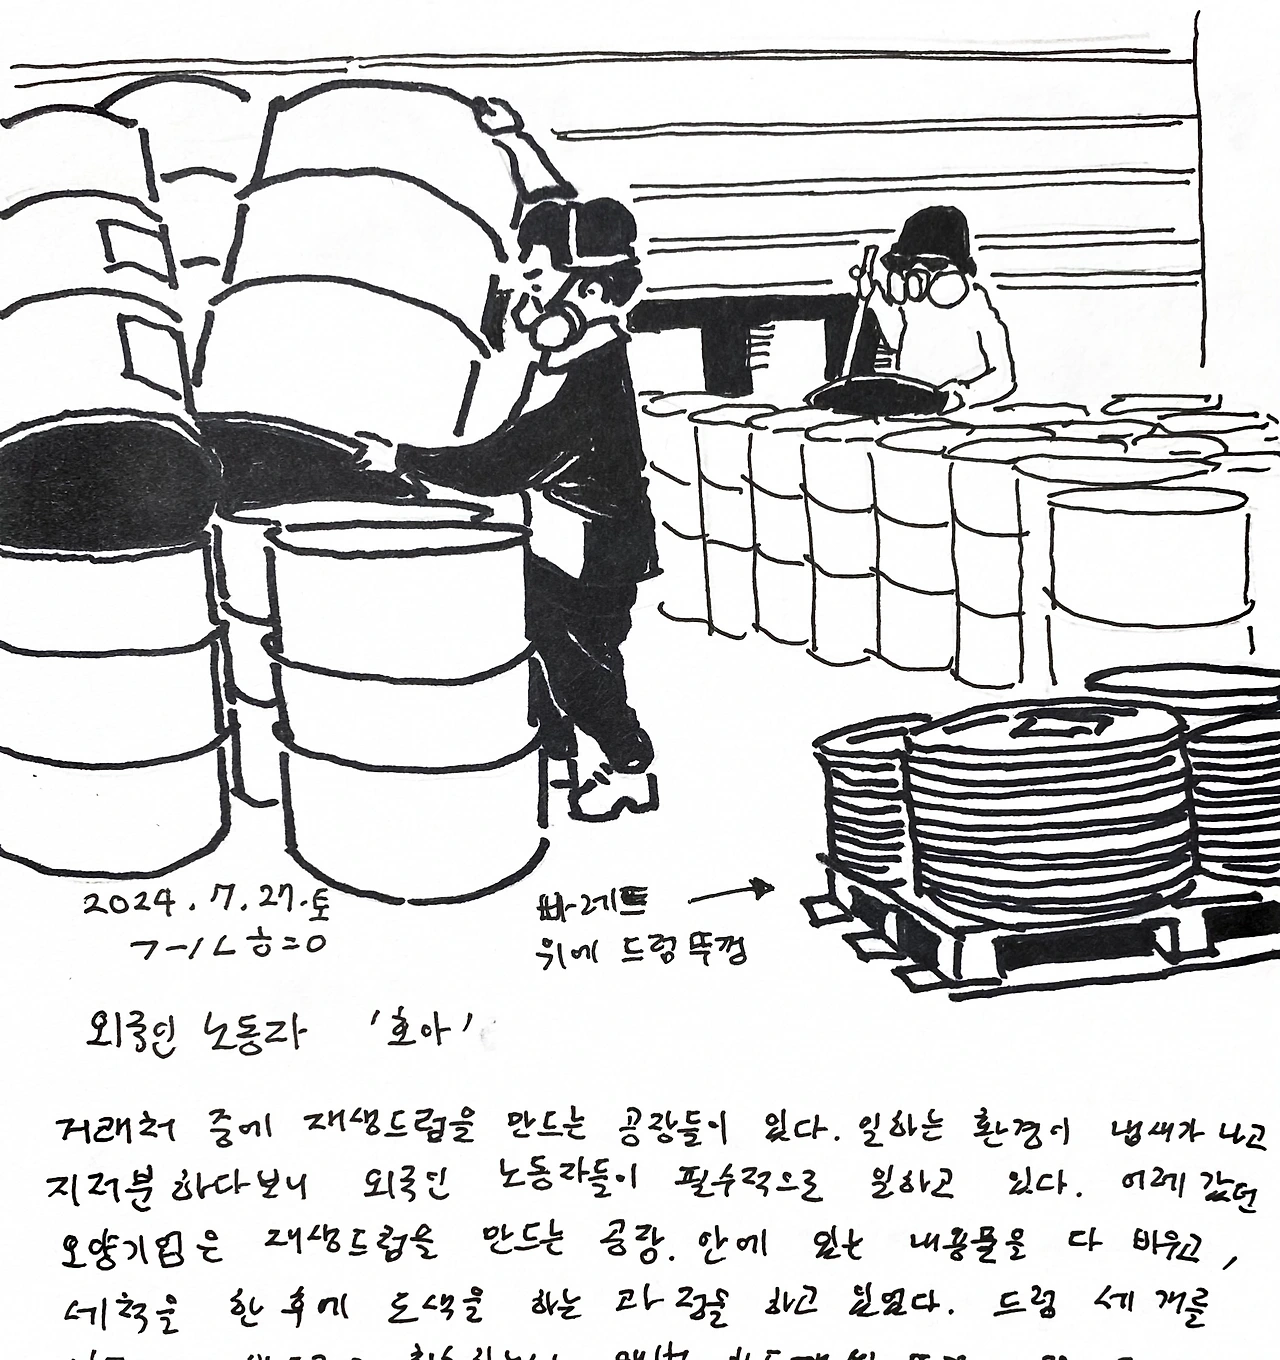 2024. 7. 27. 토
빠레트
위에 드럼뚜껑
외국인 노동자 '호아'
거래처 중에 재생드럼을 만드는 공장들이 있다. 일하는 환경이 냄새가 나고
지저분하다보니 외국인 노동자들이 필수적으로 일하고 있다. 어제 갔던
오양기업은 재생드럼을 만드는 공장. 안에 있는 내용물을 다 비우고,
세척을 한 후에 도색을 하는 과정을 하고 있었다. 드럼 세 개를